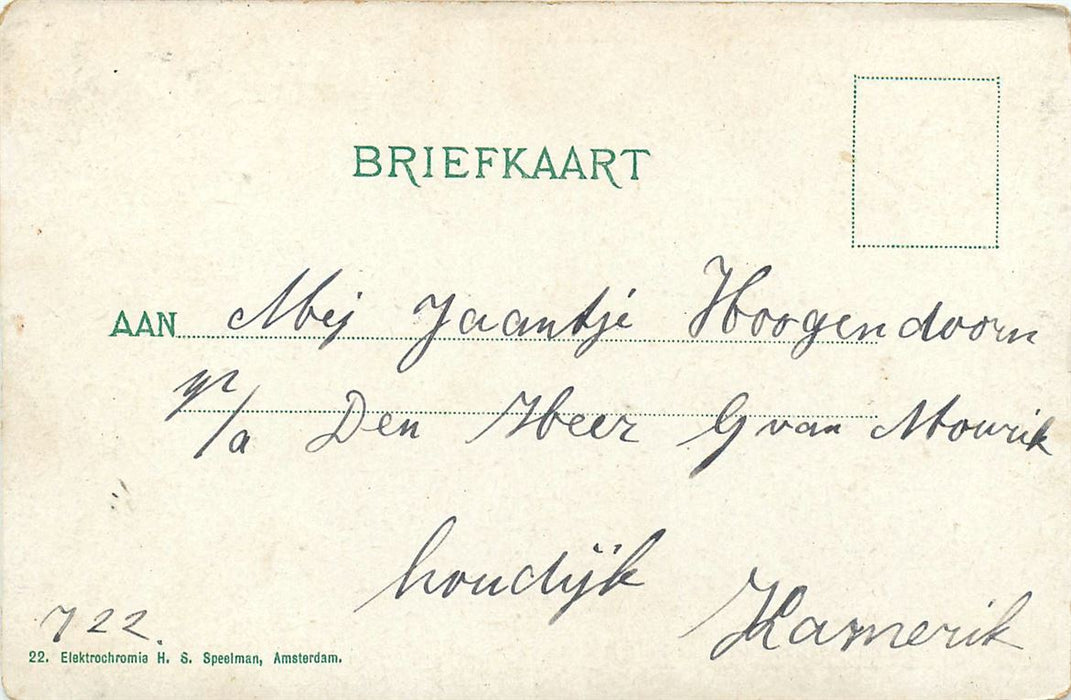 BRIEFKAART
AAN Mej Jaantje Hoogendoorn
p/a Den Heer G van Mourik
houdijk
Kamerik
722.
22. Elektrochromie H. S. Speelman, Amsterdam.